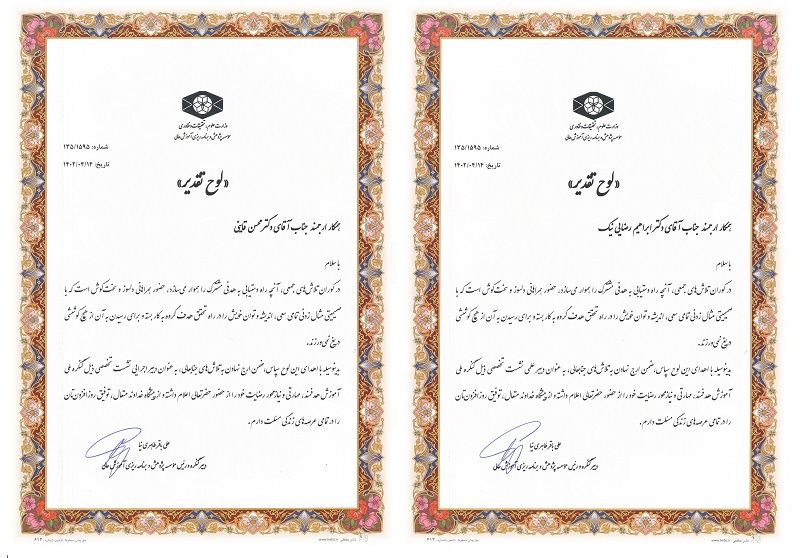 وزارت علوم، تحقیقات و فناوری
موسسه پژوهش و برنامه ریزی آموزش عالی
شماره: ۱۳۵/۱۵۹۵
تاریخ: ۱۴۰۲/۰۴/۱۴
«لوح تقدیر»
همکار ارجمند جناب آقای دکتر ابراهیم رضایی نیک
با سلام
در کوران تلاش‌های جمعی، آنچه راه دستیابی به هدفی مشترک را هموار می‌سازد، حضور همراهانی دلسوز و سخت‌کوش است که با
صمیمیتی مثال زدنی تمامی سعی، اندیشه و توان خویش را در راه تحقق هدف گروه به کار بسته و برای رسیدن به آن از هیچ کوششی
دریغ نمی‌ورزند.
بدینوسیله با اهدای این لوح سپاس، ضمن ارج نهادن به تلاش‌های جنابعالی، به عنوان دبیر علمی نشست تخصصی پنل کنگره ملی
آموزش هدفمند، مهارتی و نیازمحور رضایت خود را از حضور حضرتعالی اعلام داشته و از پیشگاه خداوند متعال، توفیق روزافزون‌تان
را در تمامی عرصه‌های زندگی مسئلت دارم.
علی باقر طاهری نیا
دبیر کنگره و رئیس موسسه پژوهش و برنامه ریزی آموزش عالی
وزارت علوم، تحقیقات و فناوری
موسسه پژوهش و برنامه ریزی آموزش عالی
شماره: ۱۳۵/۱۵۹۵
تاریخ: ۱۴۰۲/۰۴/۱۴
«لوح تقدیر»
همکار ارجمند جناب آقای دکتر محسن قاینی
با سلام
در کوران تلاش‌های جمعی، آنچه راه دستیابی به هدفی مشترک را هموار می‌سازد، حضور همراهانی دلسوز و سخت‌کوش است که با
صمیمیتی مثال زدنی تمامی سعی، اندیشه و توان خویش را در راه تحقق هدف گروه به کار بسته و برای رسیدن به آن از هیچ کوششی
دریغ نمی‌ورزند.
بدینوسیله با اهدای این لوح سپاس، ضمن ارج نهادن به تلاش‌های جنابعالی، به عنوان دبیر اجرایی نشست تخصصی پنل کنگره ملی
آموزش هدفمند، مهارتی و نیازمحور رضایت خود را از حضور حضرتعالی اعلام داشته و از پیشگاه خداوند متعال، توفیق روزافزون‌تان
را در تمامی عرصه‌های زندگی مسئلت دارم.
علی باقر طاهری نیا
دبیر کنگره و رئیس موسسه پژوهش و برنامه ریزی آموزش عالی